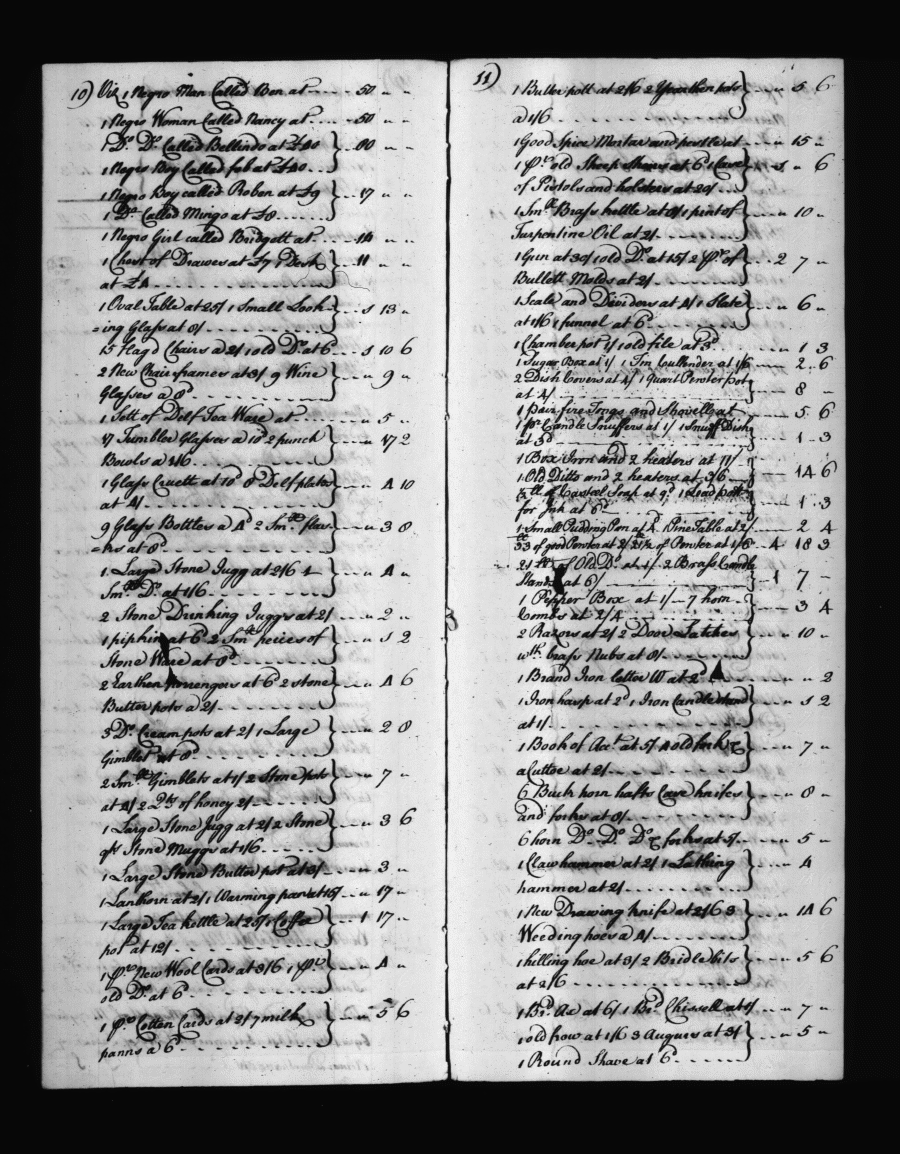 10) Viz 1 Negro Man Called Ben at - - - - 50 " "
1 Negro Woman Called Nancy at - - - - 50 " "
1 Do. Do. Called Bellindo at £40 } - - 80 " "
1 Negro Boy Called Job at £40 - - -
1 Negro Boy called Roben at £9 } - - 17 " "
1 Do. Called Mingo at £8 - - - -
1 Negro Girl called Bridgett at - - - 14 " "
1 Chest of Drawes at £7 1 Desk } - - 11 " "
at £4 - - - - - - - - - -
1 Oval Table at 25/ 1 Small Look } - - 1 13 "
=ing Glass at 8/ - - - - - - - -
15 Flagd Chairs a 2/ 1 old Do. at 6 - - 1 10 6
2 New Chair frames at 3/ 9 Wine } - - " 9 "
Glasses a 8d - - - - - - - -
1 Sett of Delf Tea Ware at - - - - " 5 "
17 Tumbler Glasses a 10d 2 punch } - - " 17 2
Bowls a 1/6 - - - - - - - -
1 Glass Cruett at 10d 8 Delf plates } - - " 4 10
at 4/ - - - - - - - - -
9 Glass Bottles a 4d 2 Smll flas } - - " 3 8
=ks at 8d - - - - - - - -
1 Large Stone Jugg at 2/6 1 } - - " 4 "
Smll Do. at 1/6 - - - - - - -
2 Stone Drinking Juggs at 2/ - - - " 2 "
1 pipkin at 6d 2 Smll peices of } - - " 1 2
Stone Ware at 8d - - - - - -
2 Earthen porrengers at 6d 2 stone } - - " 4 6
Butter pots a 2/ - - - - - - -
3 Do. Cream pots at 2/ 1 Large } - - " 2 8
Gimblet at 8d - - - - - - -
2 Smll Gimblets at 1/ 2 Stone pots } - - " 7 "
at 4/ 2 Qts of honey 2/ - - - -
1 Large Stone Jugg at 2/ 2 Stone } - - " 3 6
Stone Muggs at 1/6 - - - -
1 Large Stone Butter pot at 3/ - - - " 3 "
1 Lanthorn at 2/ 1 Warming pan at 15/ - - " 17 "
1 Large Tea kettle at 25/ 1 Coffee } - - 1 17 "
pot at 12/ - - - - - - - -
1 pr. New Wool Cards at 3/6 1 pr. } - - " 4 "
old Do. at 6d - - - - - - - -
1 pr. Cotton Cards at 2/ 7 milk } - - " 5 6
panns a 6d - - - - - - - -
11)
1 Butter pott at 2/6 2 Yearthen pots } - - " 5 6
a 1/6 - - - - - - - - - -
1 Good Spice Mortar and pestle at - - " 15 "
1 pr. old Sheep Shears at 6d 1 Case } - - 1 " 6
of Pistols and holsters at 20/ - - -
1 Smll Brass kettle at 8/ 1 pint of } - - " 10 "
Turpentine Oil at 2/ - - - - - -
1 Gun at 30/ 1 old Do. at 15/ 2 pr. of } - - 2 7 "
Bullett Molds at 2/ - - - - - -
1 Scale and Dividers at 4/ 1 Slate } - - " 6 "
at 1/6 1 funnel at 6d - - - - -
1 Chamber pot 1/ 1 old file at 3d - - - " 1 3
1 Sugar Box at 1/ 1 Tin Cullender at 1/6 - - " 2 6
2 Dish Covers at 4/ 1 Quart Pewter pot } - - " 8 "
at 4/ - - - - - - - - -
1 pair fire Tongs and Shovell at - - - " 5 6
1 pr. Candle Snuffers at 1/ 1 Snuff Dish } - - " 1 3
at 3d - - - - - - - -
1 Box Iron and 2 heaters at 11/ } - - " 14 6
1 Old Ditto and 2 heaters at 3/6
of Casteel Soap at 9d 1 Lead pott } - - " 1 3
for Ink at 6d - - - - - - -
1 Small Pudding Pan at 4d 1 Pine Table at 2/ - - " 2 4
33 lb of good Pewter at 2/ 21 1/2 of Pewter at 1/8 - - 4 18 3
21 lb of Old Do. at 1/ 2 Brass Candle } - - 1 7 "
Stands at 6/ - - - - - -
1 Pepper Box at 1/ - 7 horn } - - " 3 4
Combs at 2/4 - - - - - - -
2 Razors at 2/ 2 Door Latches } - - " 10 "
wth. brass Nubs at 8/ - - - - -
1 Brand Iron letter W at 2d - - - " " 2
1 Iron hasp at 2d 1 Iron Candlestand } - - " 1 2
at 1/ - - - - - - - - - -
1 Book of Act at 5/ 4 old forks & } - - " 7 "
a Cuttoe at 2/ - - - - - - -
6 Buck horn hafts Case knifes } - - " 8 "
and forks at 8/ - - - - - - -
6 horn Do. Do. Do. & forks at 5/ - - " 5 "
1 Claw hammer at 2/ 1 Lathing } - - " 4
hammer at 2/ - - - - - - -
1 New Drawing knife at 2/6 3 } - - " 14 6
Weeding hoes a 4/ - - - - - -
1 hilling hoe at 3/ 2 Bridle bits } - - " 5 6
at 2/6 - - - - - - - - -
1 Bd. Ax at 6/ 1 Bd. Chissell at 1/ - - " 7 "
1 old frow at 1/6 3 Augurs at 3/ } - - " 5 "
1 Round Shave at 6d - - - - -